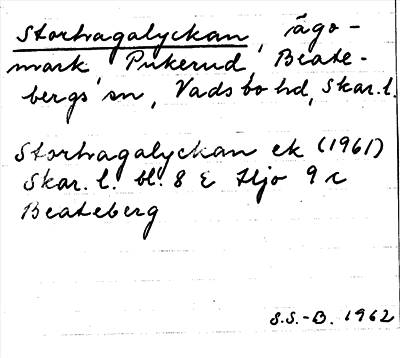 Storhagalyckan, ägo-
mark, Pukerud, Beate-
bergs sn, Vadsbo hd, Skar. l.
Storhagalyckan ek (1961)
Skar. l. bl. 8 E Hjo 9 c
Beateberg
S.S.-B. 1962